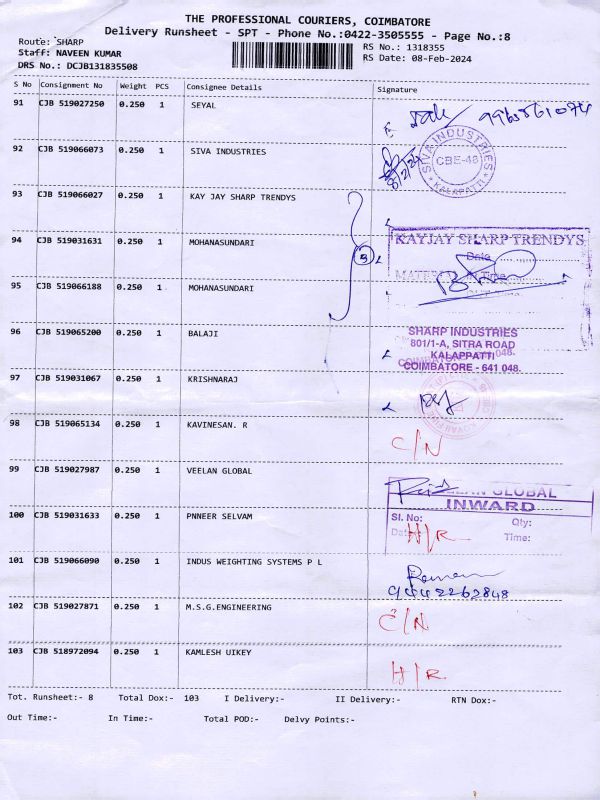 THE PROFESSIONAL COURIERS, COIMBATORE
Delivery Runsheet - SPT - Phone No.:0422-3505555 - Page No.:8
Route: SHARP
RS No.: 1318355
Staff: NAVEEN KUMAR
RS Date: 08-Feb-2024
DRS No.: DCJB131835508
S No Consignment No Weight PCS Consignee Details Signature
91 CJB 519027250 0.250 1 SEYAL
92 CJB 519066073 0.250 1 SIVA INDUSTRIES
8/2/24
SIVA INDUSTRIES
CBE-48
KALAPATTI
93 CJB 519066027 0.250 1 KAY JAY SHARP TRENDYS
94 CJB 519031631 0.250 1 MOHANASUNDARI
KAYJAY SHARP TRENDYS
Date
Time
95 CJB 519066188 0.250 1 MOHANASUNDARI
96 CJB 519065200 0.250 1 BALAJI
SHARP INDUSTRIES
801/1-A, SITRA ROAD
KALAPPATTI
COIMBATORE - 641 048.
97 CJB 519031067 0.250 1 KRISHNARAJ
98 CJB 519065134 0.250 1 KAVINESAN. R
C/N
99 CJB 519027987 0.250 1 VEELAN GLOBAL
GLOBAL
INWARD
Sl. No: Qty:
Time:
100 CJB 519031633 0.250 1 PNNEER SELVAM
H/R
101 CJB 519066090 0.250 1 INDUS WEIGHTING SYSTEMS P L
Raman
9442262848
102 CJB 519027871 0.250 1 M.S.G.ENGINEERING
C/N
103 CJB 518972094 0.250 1 KAMLESH UIKEY
H/R
Tot. Runsheet:- 8 Total Dox:- 103 I Delivery:- II Delivery:- RTN Dox:-
Out Time:- In Time:- Total POD:- Delvy Points:-